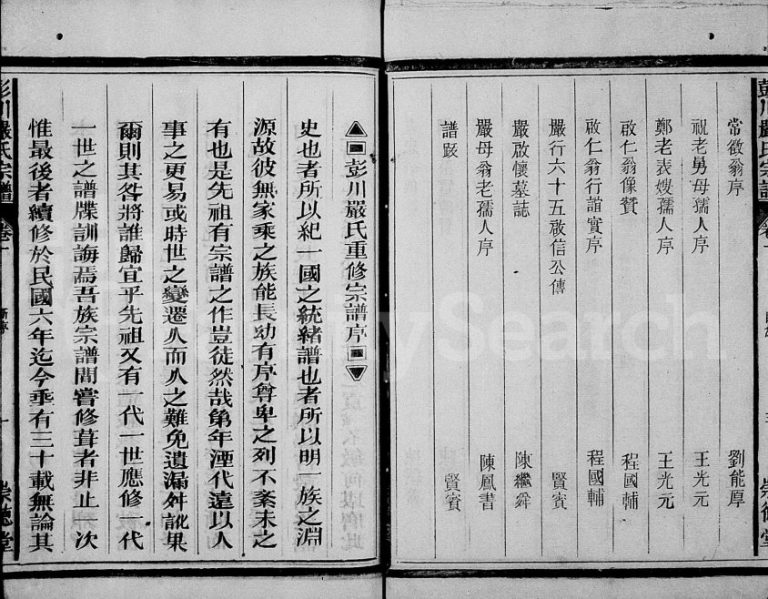 彭川嚴氏宗譜
常欲翁序 劉能厚
祝老舅母孺人序 王光元
鄭老表嫂孺人序 王光元
啟仁翁像贊 程國輔
啟仁翁行誼實序 程國輔
嚴行六十五啟信公傳 賢賓
嚴啟懷墓誌 陳繼舜
嚴母翁老孺人序 陳鳳書
譜跋 賢賓
崇德堂
彭川嚴氏重修宗譜序
史也者所以紀一國之統緒譜也者所以明一族之淵
源故彼無家乘之族能長幼有序尊卑之列不紊未之
有也是先祖有宗譜之作豈徒然哉第年湮代遠以人
事之更易或時世之變遷人而人之難免遺漏舛訛果
爾則其咎將誰歸宜乎先祖又有一代一世應修一代
一世之譜牒訓誨焉吾族宗譜間嘗修葺者非止一次
惟最後者續修於民國六年迄今垂有三十載無論其
彭川嚴氏宗譜 卷一 新序 一 崇德堂